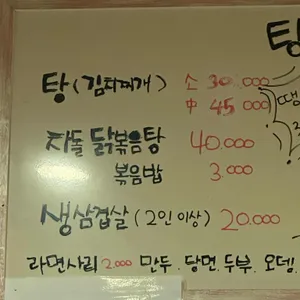 탕
탕 (김치찌개) 소 30.000
中 45.000
차돌 닭볶음탕 40.000
볶음밥 3.000
생삼겹살 (2인이상) 20.000
라면사리 2.000 만두. 당면. 두부. 오뎅.